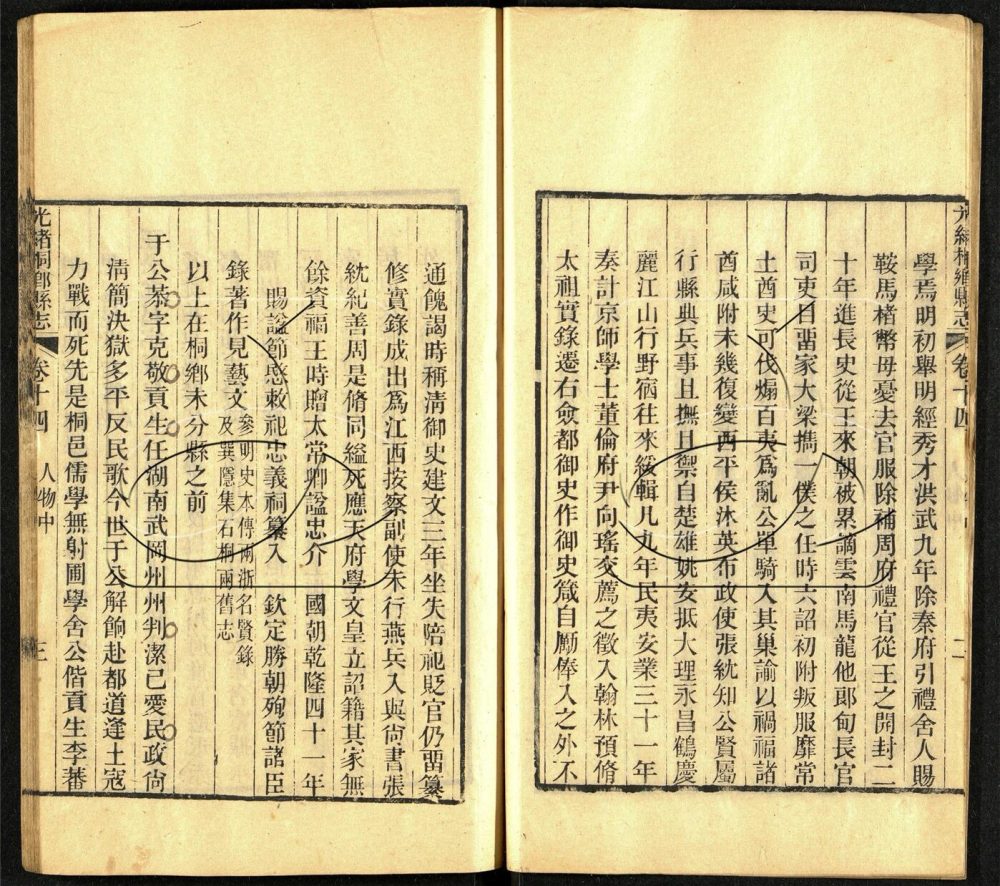 光緖桐鄉縣志
卷十四
二
學焉明初舉明經秀才洪武九年除秦府引禮舍人賜
鞍馬楮幣母憂去官服除補周府禮官從王之開封二
十年進長史從王來朝被累謫雲南馬龍他郎甸長官
司吏目畱家大梁擕一僕之任時六詔初附叛服靡常
土酋史可伐煽百夷爲亂公單騎入其巢諭以禍福諸
酋咸附未幾復變西平侯沐英布政使張紞知公賢屬
行縣典兵事且撫且禦自楚雄姚安抵大理永昌鶴慶
麗江山行野宿往來綏輯凡九年民夷安業三十一年
奏計京師學士董倫府尹向瑤交薦之徵入翰林預脩
太祖實錄遷右僉都御史作御史箴自勵俸入之外不
通餽謁時稱淸御史建文三年坐失陪祀貶官仍畱纂
修實錄成出爲江西按察副使未行燕兵入與尙書張
紞紀善周是脩同縊死應天府學文皇立詔籍其家無
餘資福王時贈太常卿諡忠介 國朝乾隆四十一年
賜諡節愍敕祀忠義祠纂入 欽定勝朝殉節諸臣
錄著作見藝文參明史本傳兩浙名賢錄
及巽隱集石桐兩舊志
以上在桐鄉未分縣之前
于公恭字克敬貢生任湖南武岡州州判潔己愛民政尙
淸簡決獄多平反民歌今世于公解餉赴都道逢土寇
力戰而死先是桐邑儒學無射圃學舍公偕貢生李蕃
光緖桐鄉縣志
卷十四
人物中
三